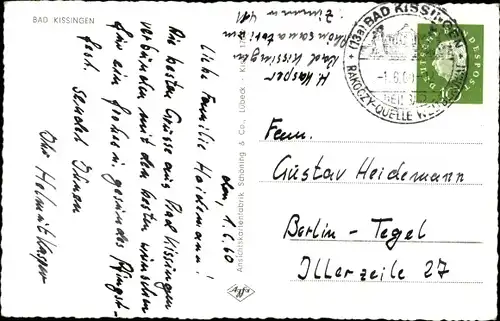 BAD KISSINGEN
H. Kasper
Bad Kissingen
Rhönsanatorium
Zimmer 411
den, 1.6.60
Liebe Familie Heidemann!
Die besten Grüsse aus Bad Kissingen
verbunden mit den besten Wünschen
für ein frohes u. gesundes Pfingst-
fest sendet Ihnen
Ihr Helmut Kasper
Ansichtskartenfabrik Schöning & Co., Lübeck
(13a) BAD KISSINGEN
-1.6.60
RAKOCZY-QUELLE
DEUTSCHE BUNDESPOST
10
Fam.
Gustav Heidemann
Berlin - Tegel
Illerzeile 27